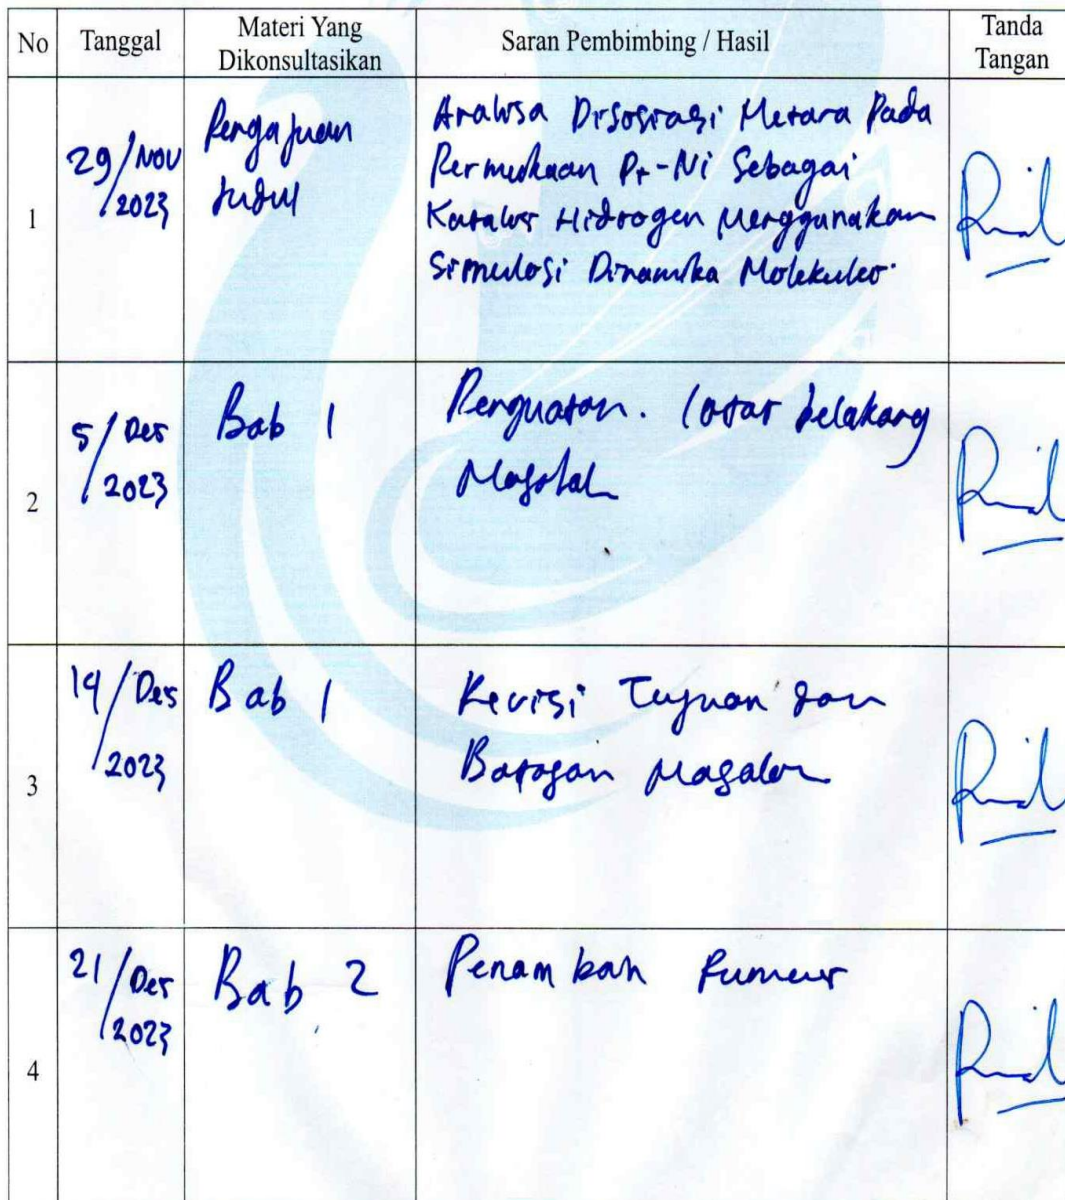 No
Tanggal
Materi Yang
Dikonsultasikan
Saran Pembimbing / Hasil
Tanda
Tangan
1
29/Nov
/2023
Pengajuan
Judul
Analisa Disosiasi Metana Pada
Permukaan Pt-Ni Sebagai
Katalis Hidrogen Menggunakan
Simulasi Dinamika Molekuler
2
5/Des
/2023
Bab 1
Penguatan. latar belakang
Masalah
3
14/Des
/2023
Bab 1
Revisi Tujuan dan
Batasan Masalah
4
21/Des
/2023
Bab 2
Penambah